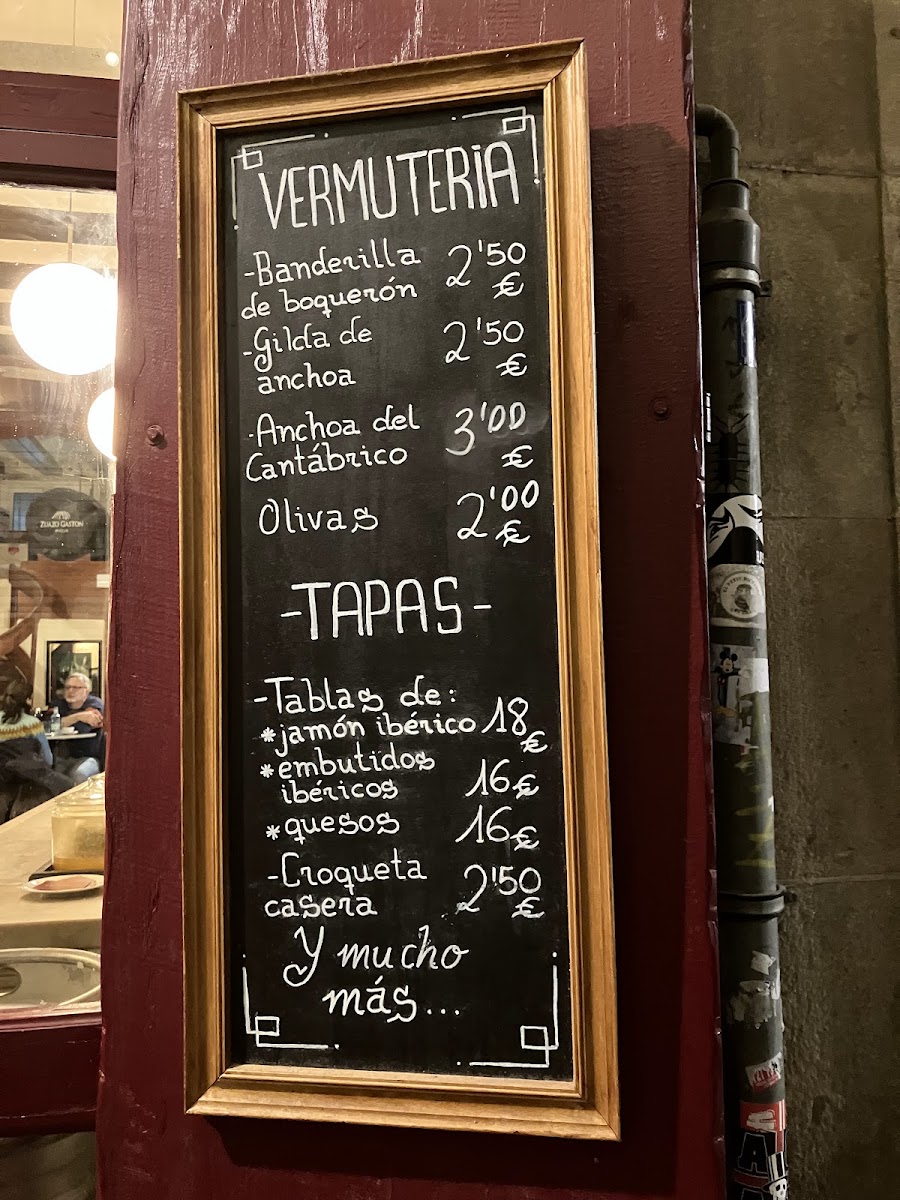 VERMUTERIA
-Banderilla 2'50
de boquerón €
-Gilda de 2'50
anchoa €
·Anchoa del 3'00
Cantábrico €
Olivas 2'00
€
-TAPAS-
-Tablas de:
*jamón ibérico 18 €
*embutidos
ibéricos 16 €
*quesos 16 €
-Croqueta 2'50
casera €
Y mucho
más...
ZUAZO GASTON